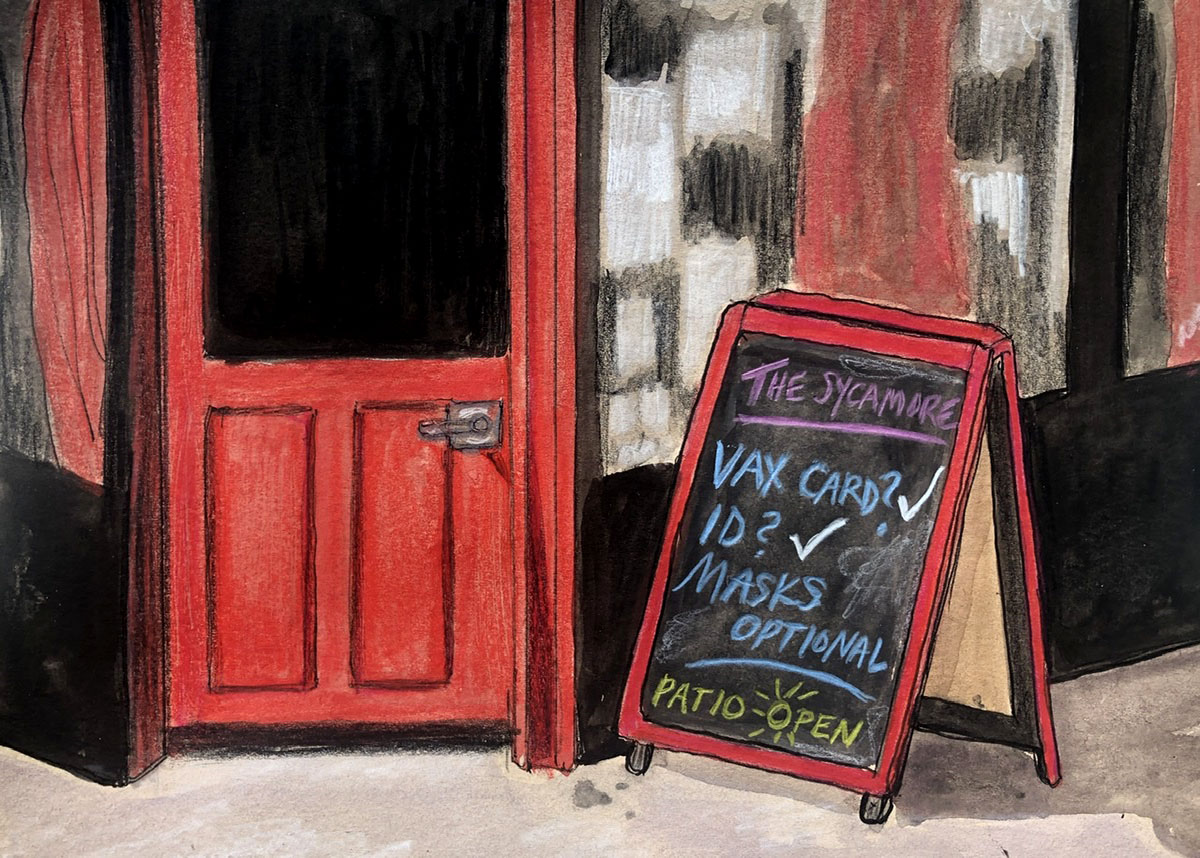 THE SYCAMORE
VAX CARD? ✓
ID? ✓
MASKS
OPTIONAL
PATIO OPEN